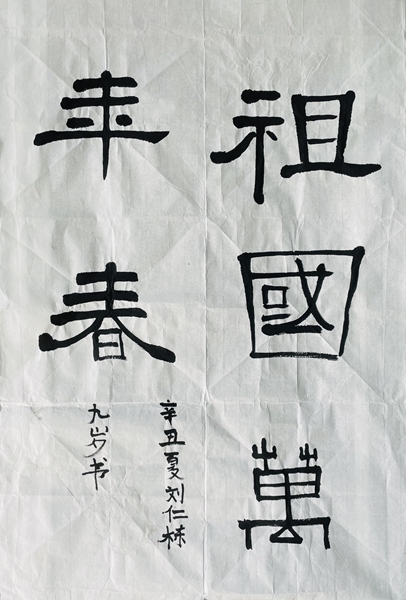 祖國萬
年春
辛丑夏刘仁栋
九岁书